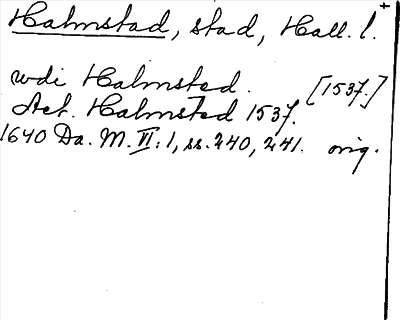 Halmstad, stad, Hall. l. +
udi Halmsted. [1537.]
Act. Halmsted 1537.
1640 Da. M. VI: 1, ss. 240, 241. orig.